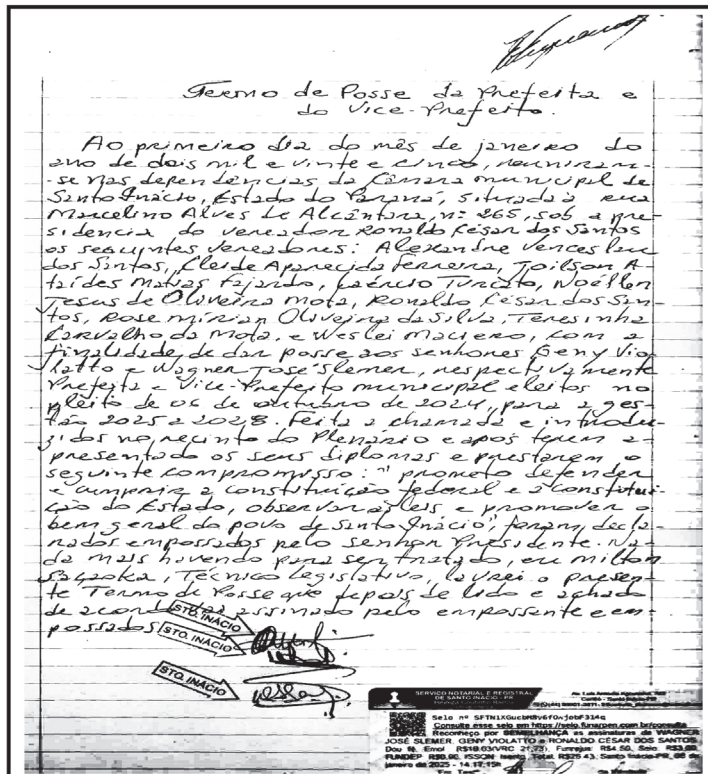 Termo de Posse da Prefeita e
do Vice-Prefeito.
Ao primeiro dia do mês de janeiro do
ano de dois mil e vinte e cinco, reuniram-
-se nas dependências da Câmara municipal de
Santo Inácio, Estado do Paraná, situada à rua
Marcelino Alves de Alcântara, nº 265, sob a pre-
sidencia do vereador Ronaldo César dos Santos
os seguintes vereadores: Alexandre Venceslau
dos Santos, Cleide Aparecida Ferreira, Joilson A-
taídes Matias Fajardo, Laércio Turcato, Noéllen
Jesus de Oliveira Mota, Ronaldo César dos San-
tos, Rose Mirian Oliveira da Silva, Teresinha
Carvalho da Mota, e Weslei Maciero, com a
finalidade de dar posse aos senhores Geny Vio-
latto e Wagner José Slemer, respectivamente
Prefeita e Vice-Prefeito municipal eleitos no
pleito de 06 de outubro de 2024, para a ges-
tão 2025 a 2028. Feita a chamada e introdu-
zidos no recinto do Plenário e após terem a-
presentado os seus diplomas e prestarem o
seguinte compromisso: "prometo defender
e cumprir a constituição federal e a constitui-
ção do Estado, observar as leis e promover o
bem geral do povo de Santo Inácio", foram decla-
rados empossados pelo senhor Presidente. Na-
da mais havendo para ser tratado, eu milton
Técnico Legislativo, lavrei o presen-
te Termo de Posse que depois de lido e achado
de acordo vai assinado pelo empossante e em-
possados.
STO. INÁCIO
STO. INÁCIO
STO. INÁCIO
SERVIÇO NOTARIAL E REGISTRAL
DE SANTO INÁCIO - PR
Selo nº
Consulte esse selo em https://selo.funarpen.com.br/consulta
Reconheço por SEMELHANÇA as assinaturas de WAGNER
JOSÉ SLEMER, GENY VIOLATTO e RONALDO CÉSAR DOS SANTOS.
Dou fé. Emol R$18,03(VRC 21,73), Funrejus: R$4,50, Selo: R$3,00,
FUNDEP R$0,90, ISSQN: Isento, Total: R$26,43. Santo Inácio-PR, 06 de
janeiro de 2025 - 14:17:15h